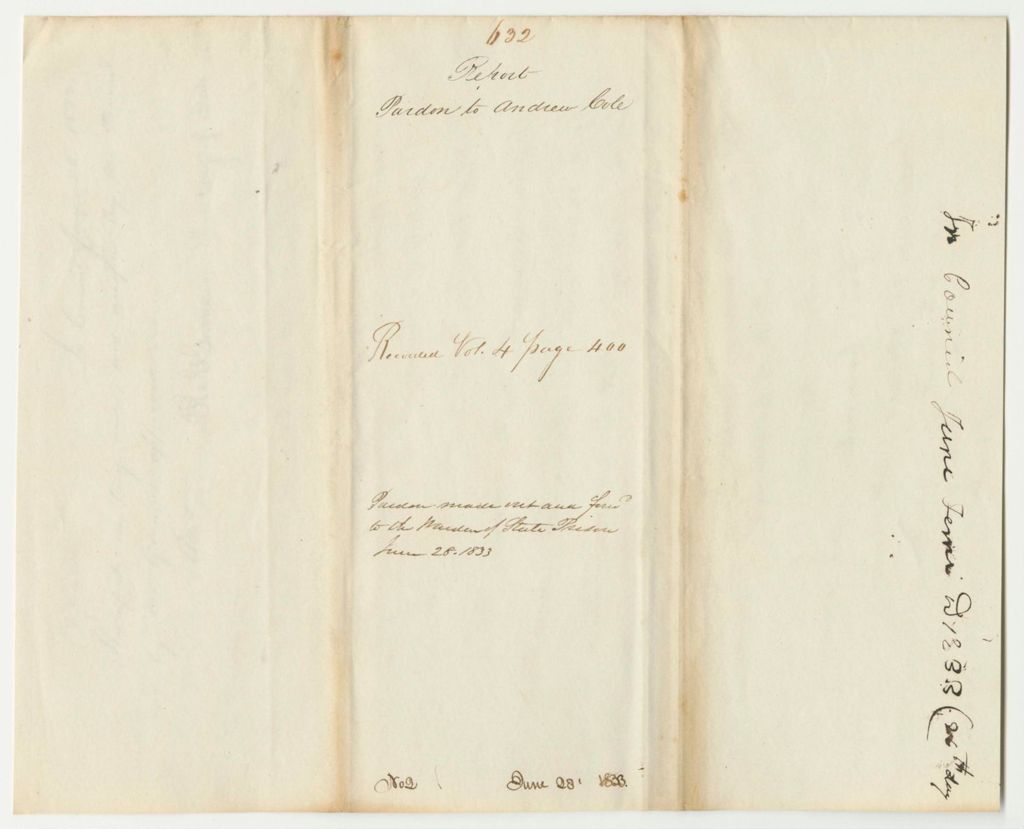 632
Report
Pardon to Andrew Cole
Recorded Vol. 4 page 400
Pardon made out and forwd
to the Warden of State Prison
June 28. 1833
No 2 June 28. 1833.
In Council June